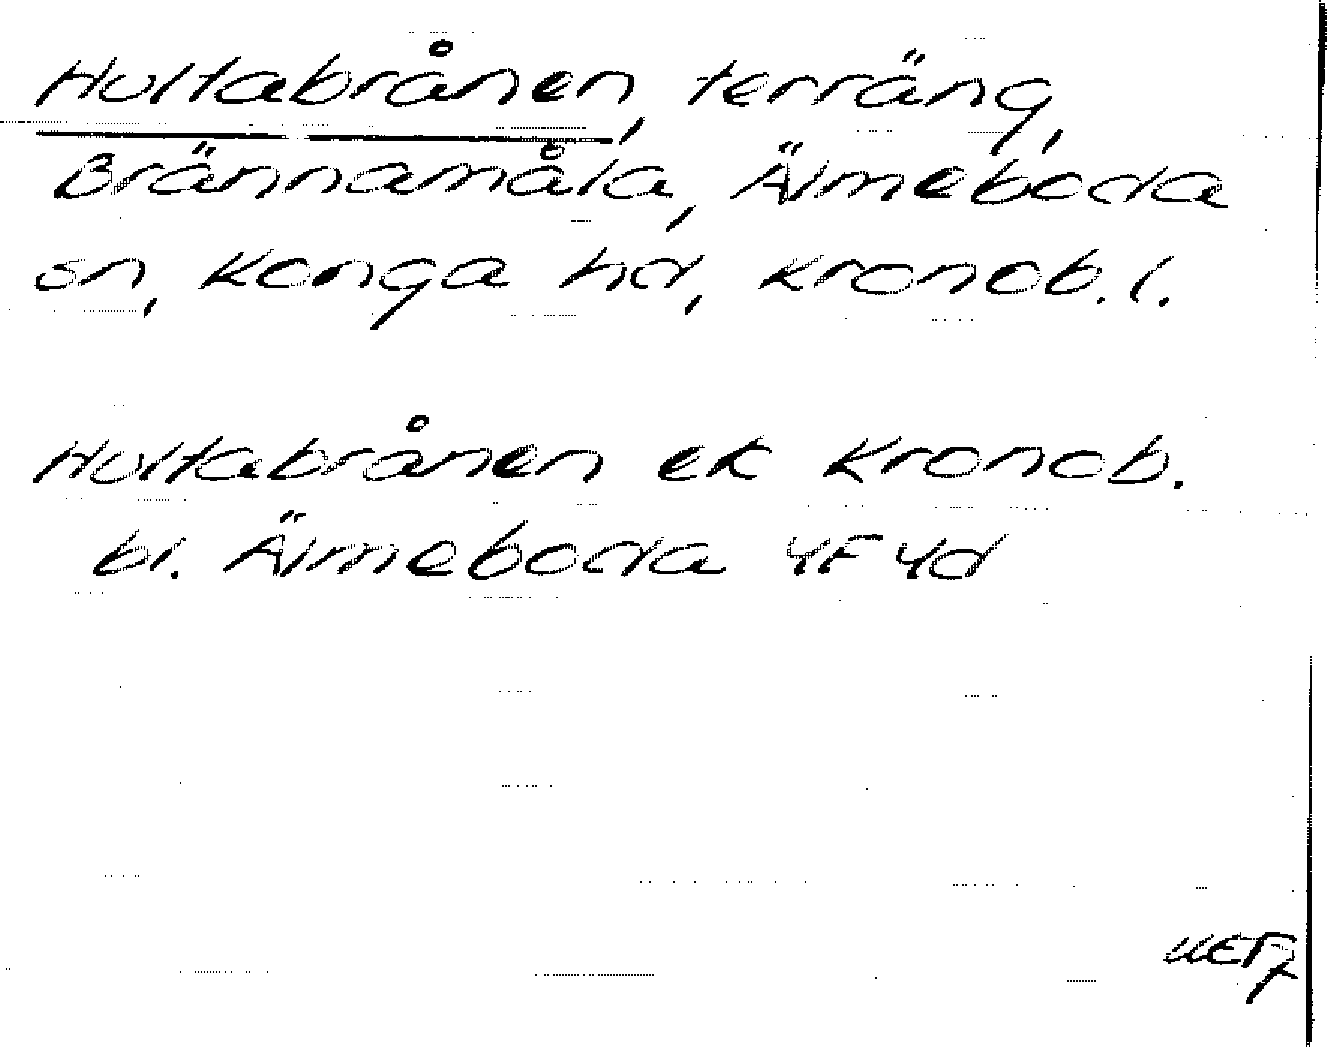 Hultabrånen, terräng,
Brännamåla, Älmeboda
sn, Konga hd, Kronob. l.
Hultabrånen ek Kronob.
bl. Älmeboda 4F 4d